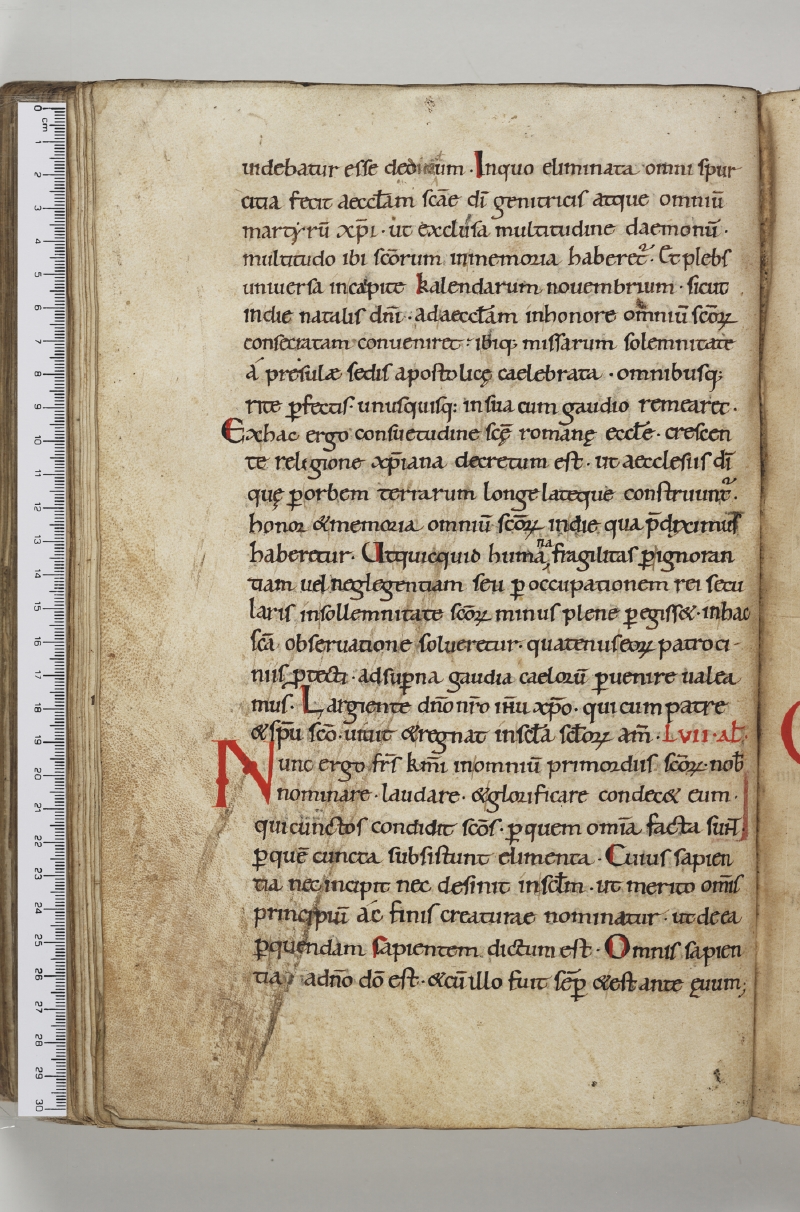 uidebatur esse dedicatum · Inquo eliminata omni spur
citia fecit aeccłam scāe dī genitricis atque omniū
martyrū xp̄i · ut exclusa multitudine daemonū ·
multitudo ibi scōrum inmemoria haberet᷑ · Et plebs
uniuersa incapite kalendarum nouembrium · sicut
indie natalis dn̄i · adaeccłam inhonore omniū scōꝝ
consecratam conueniret · ibiq; missarum solemnitate
á presulæ sedis apostolicę caelebrata · omnibusq;
rite ꝑfectis · unusquisq; insua cum gaudio remearet ·
Exhac ergo consuetudine scę̄ romanę eccłe · crescen
te religione xp̄iana decretum est · ut aecclesiis dī
quę ꝑorbem terrarum longe lateque construunt᷑ ·
honor &memoria omniū scōꝝ indie qua p̄diximus
haberetur · Utquicquid humana fragilitas ꝑignoran
tiam uel neglegentiam seu ꝑoccupationem rei secu
laris insollemnitate scōꝝ minus plene ꝑegiss& · inhac
scā obseruatione solueretur · quatenus eoꝝ patroci-
niis ꝓtecti · adsup̄na gaudia caeloꝝū ꝑuenire ualea
mus · Largiente dn̄o nr̄o ihū xp̄o · qui cum patre
&sp̄u scō · uiuit &regnat inscła scłoꝝ am̄ · Lvii · ab̄
Nunc ergo fr̄s km̄i inomniū primordiis scōꝝ · nob̄
nominare · laudare · &glorificare condec& eum ·
qui cunctos condidit scōs · ꝑquem omīa facta sun̄t;
ꝑquē cuncta subsistunt elimenta · Cuius sapien
tia nec incipit nec desinit inscłm · ut merito om̄is
principiū ac finis creaturae nominatur · ut de ea
ꝑquendam sapientem dictum est · Omnis sapien
tia adn̄o dō est · &cū illo fuit sēp &est ante ęuum;
0 cm
1
2
3
4
5
6
7
8
9
10
11
12
13
14
15
16
17
18
19
20
21
22
23
24
25
26
27
28
29
30